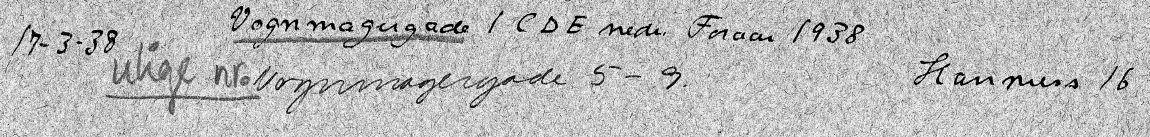 17-3-38 Vognmagergade 1 CDE nedr. Foraar 1938
ulige nr. Vognmagergade 5-9. 16